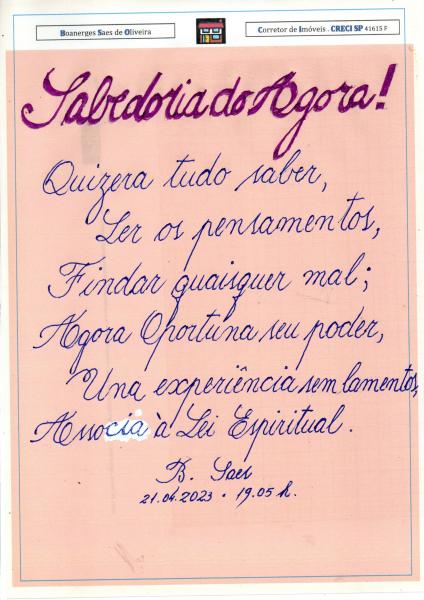 Boanerges Saes de Oliveira
Corretor de Imóveis . CRECI SP 41615 F
Sabedoria do Agora!
Quizera tudo saber,
Ler os pensamentos,
Findar quaisquer mal;
Agora Oportuna seu poder,
Una experiência sem lamentos,
Associa à Lei Espiritual.
B. Saes
21.04.2023 . 19.05 h.